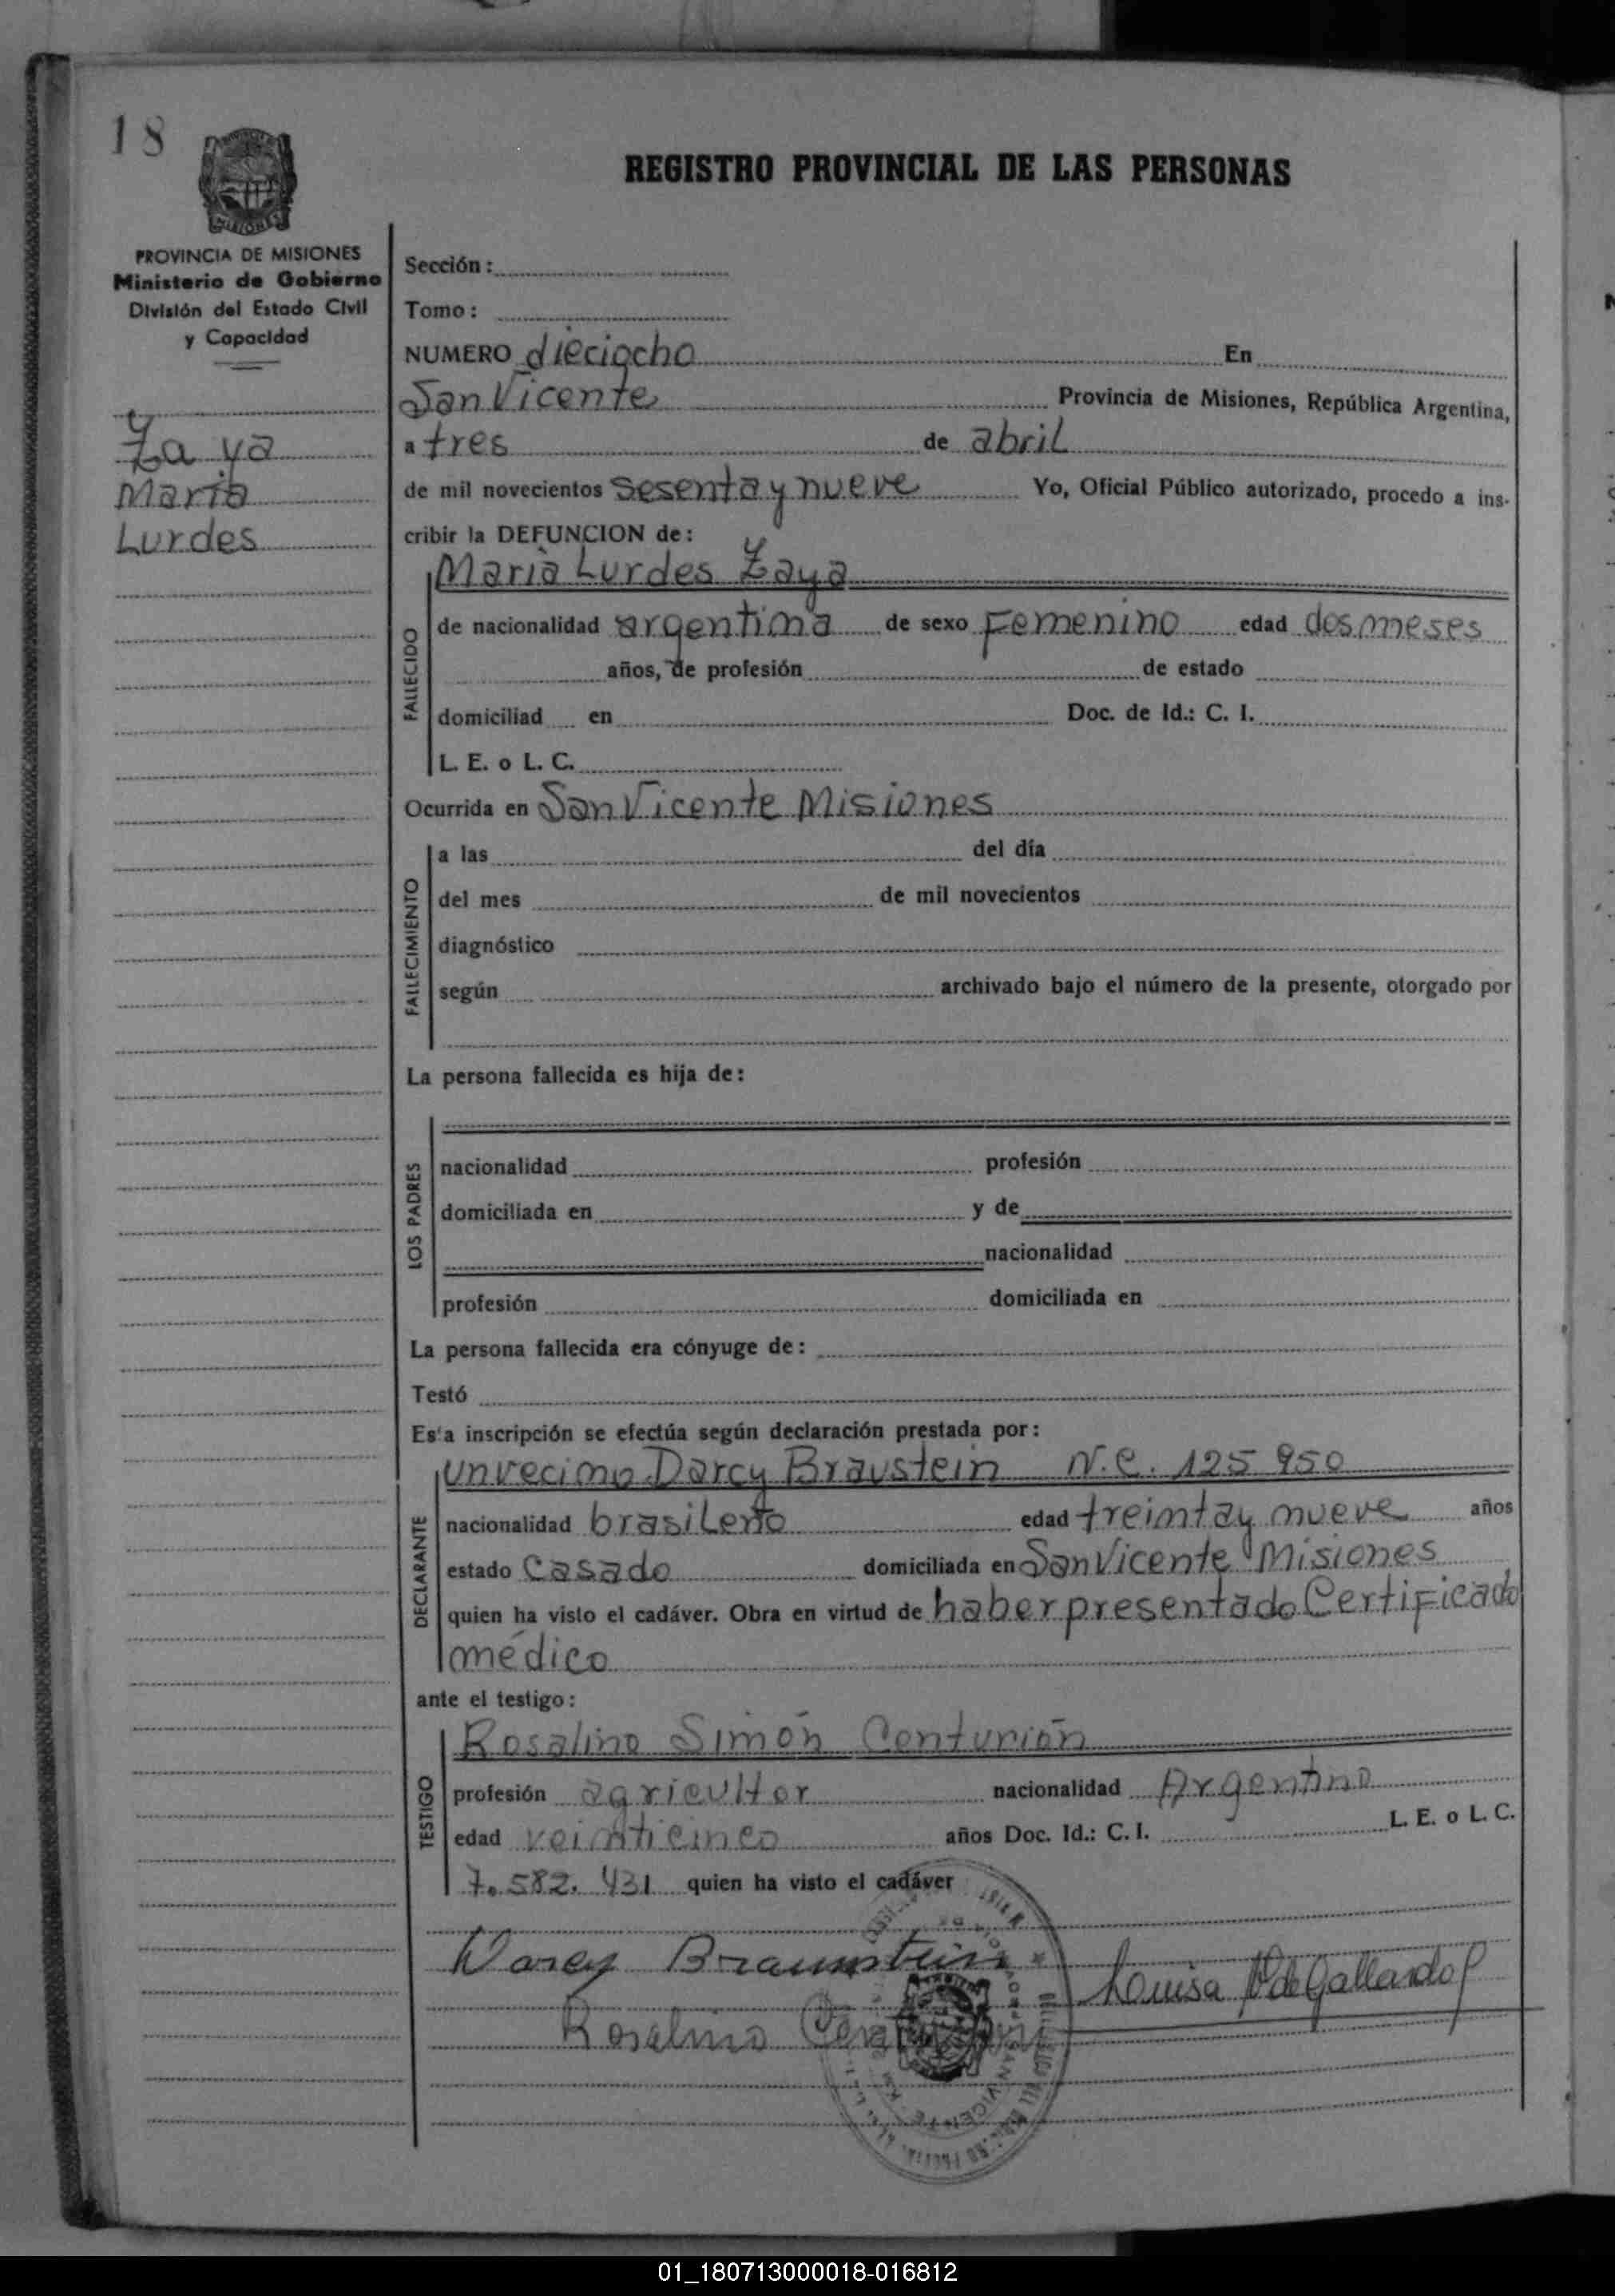 18
REGISTRO PROVINCIAL DE LAS PERSONAS
PROVINCIA DE MISIONES
Ministerio de Gobierno
División del Estado Civil
y Capacidad
Zaya
Maria
Lurdes
Sección:
Tomo:
NUMERO dieciocho En
San Vicente Provincia de Misiones, República Argentina,
a tres de abril
de mil novecientos sesenta y nueve Yo, Oficial Público autorizado, procedo a ins-
cribir la DEFUNCION de:
Maria Lurdes Zaya
FALLECIDO
de nacionalidad argentina de sexo Femenino edad dos meses
años, de profesión de estado
domiciliad en Doc. de Id.: C. I.
L. E. o L. C.
Ocurrida en San Vicente Misiones
FALLECIMIENTO
a las del día
del mes de mil novecientos
diagnóstico
según archivado bajo el número de la presente, otorgado por
La persona fallecida es hija de:
LOS PADRES
nacionalidad profesión
domiciliada en y de
nacionalidad
profesión domiciliada en
La persona fallecida era cónyuge de:
Testó
Esta inscripción se efectúa según declaración prestada por:
un vecino Darcy Braustein N.C. 125 950
DECLARANTE
nacionalidad brasileño edad treinta y nueve años
estado casado domiciliada en San Vicente Misiones
quien ha visto el cadáver. Obra en virtud de haber presentado Certificado
médico
ante el testigo:
Rosalino Simón Centurión
TESTIGO
profesión agricultor nacionalidad Argentino
edad veinticinco años Doc. Id.: C. I. L. E. o L. C.
7.582.431 quien ha visto el cadáver
Darcy Braunstein
Louisa de Gallardo
Rosalino Centurion
SAN VICENTE
01_180713000018-016812